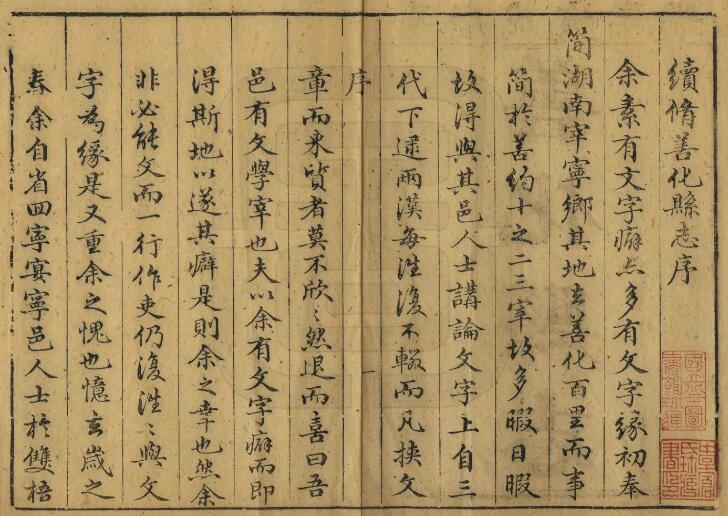 續脩善化縣志序
余素有文字癖亦多有文字緣初奉
簡湖南宰寧鄉其地去善化百里而事
簡於善約十之二三宰故多暇日暇
故得與其邑人士講論文字上自三
代下逮兩漢每往復不輟而凡挾文
序
一
章而來質者莫不欣〻然退而喜曰吾
邑有文學宰也夫以余有文字癖而即
得斯地以遂其癖是則余之幸也然余
非必能文而一行作吏仍復往〻與文
字為緣是又重余之愧也憶去歲之
春余自省回寧宴寧邑人士於雙梧